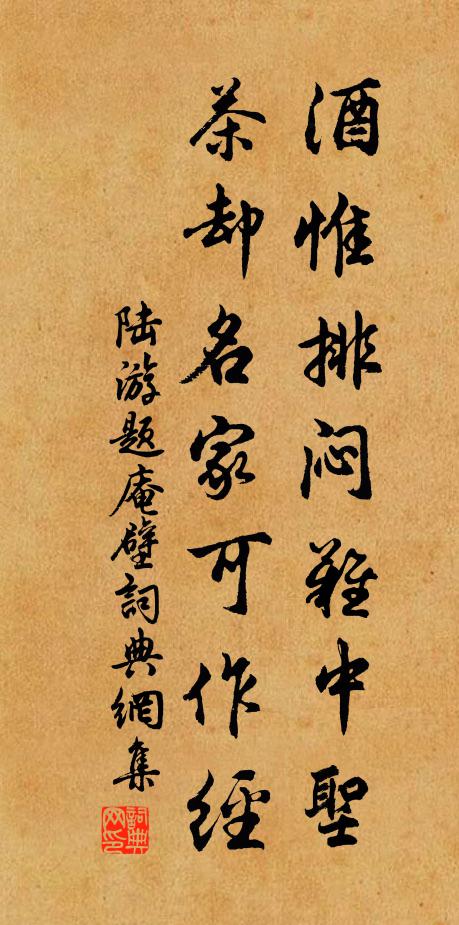 酒惟排闷難中聖
茶却名家可作經
陆游题庵壁詞典網集
詞典网印